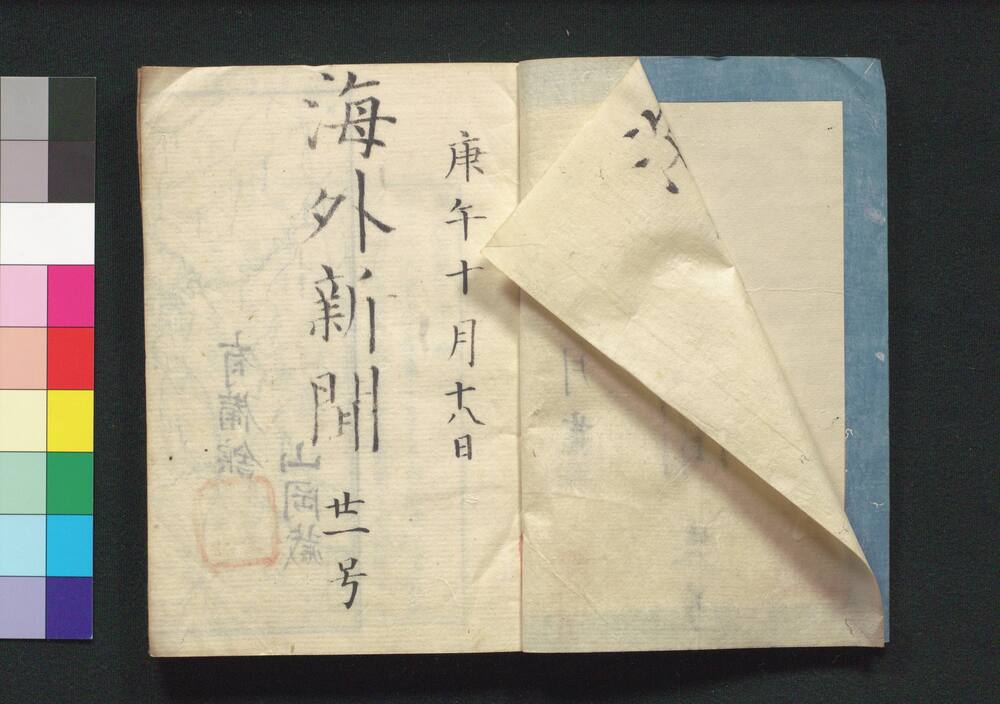 庚午十月十八日
海外新聞
廿一号